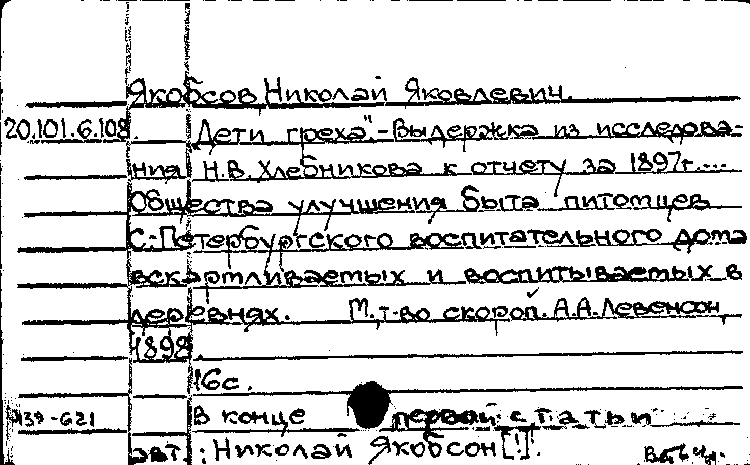 Якобсов Николай Яковлевич.
20.101.6.108. „Дети греха".-Выдержка из исследова-
ния Н.В.Хлебникова к отчету за 1897г....
Общества улучшения быта питомцев
С.-Петербургского воспитательного дома
вскармливаемых и воспитываемых в
деревнях. М.,т-во скороп. А.А.Левенсон,
1898.
16с.
139-621 В конце первой статьи
авт.: Николай Якобсон[!].